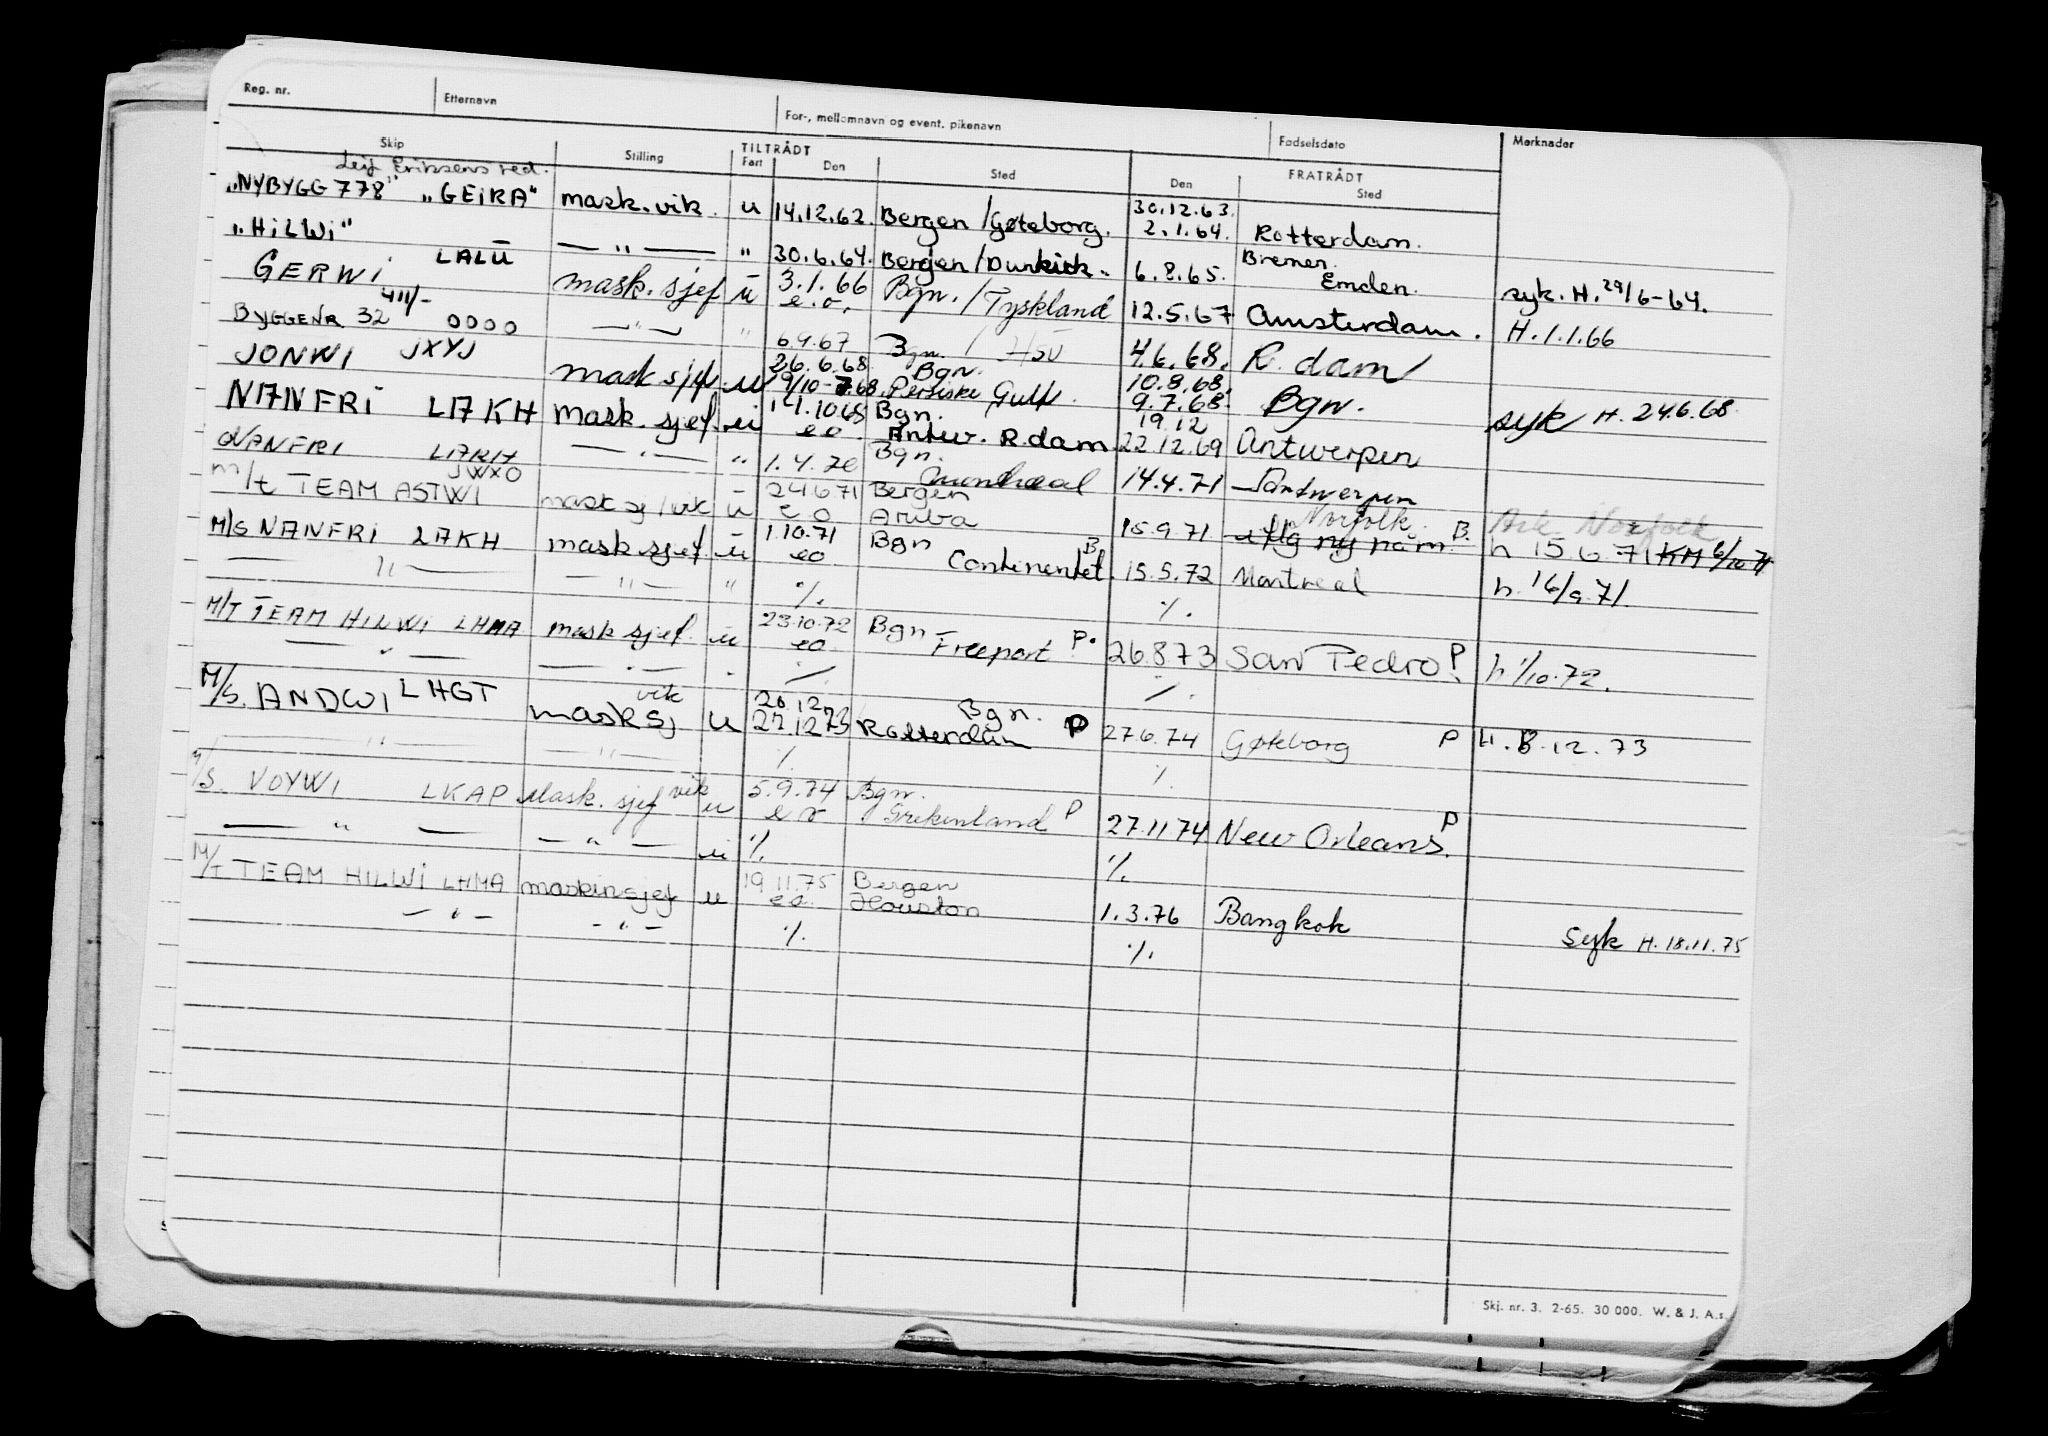 Reg. nr. Etternavn For-, mellomnavn og event. pikenavn Fødselsdato Merknader
Skip Stilling TILTRÅDT Fart Den Sted FRATRÅDT Den Sted
Leif Eriksens red.
"NYBYGG 778" "GEIRA" mask.vik. u 14.12.62. Bergen/Gøteborg. 30.12.63. 2.1.64. Rotterdam.
"HILWI" — " — " 30.6.64. Bergen/Dunkirk. 6.8.65. Bremen. Emden. syk. H. 29/6-64.
GERWI LALU mask. sjef u 3.1.66 e.o. Bgn. / Tyskland 12.5.67 Amsterdam. H. 1.1.66
BYGGENR 32 411/- 0000 — " — " 6.9.67 Bgn. / 4.6.68. R.dam
JONWI JXYJ mask sjef u 26.6.68 Bgn. Persiske Gulf. 10.8.68. 9.7.68. Bgn. syk H. 24.6.68.
NANFRI LAKH mask. sjef. u 14.1068 eo. Bgn. Antw. R.dam 19.12 22.12.69 Antwerpen
NANFRI LAKH — " — " 1.4.70 Bgn. 14.4.71 Antwerpen
m/t TEAM ASTWI JWXO mask sj/vik u 24671 eo Bergen Aruba 15.9.71 Norfolk. B. h 15.6.71 KM 6/10 71
M/S NANFRI LAKH mask sjef u 1.10.71 eo Bgn Continentet. B 15.5.72 Montreal h. 16/9.71.
— " — — " — " %. %.
M/T TEAM HILWI LHMA mask sjef. u 23.10.72 eo Bgn Freeport P. 26.8.73 San Pedro P. h 1/10.72.
— " — — " — " %. %.
M/S. ANDWI LHGT mask sj vik u 20.12 27.12 73 Bgn. Rotterdam P 27.6.74 Gøteborg P H. 8.12.73
— " — — " — %. %.
M/S. VOYWI LKAP Mask. sjef vik u 5.9.74 eo Bgn. Grekenland P 27.11 74 New Orleans. P
— " — — " — u %. %.
M/t TEAM HILWI LHMA maskinsjef u 19 11.75 eo. Bergen Houston 1.3.76 Bangkok Syk H. 18.11.75
— " — — " — %. %.
Skj. nr. 3. 2-65. 30 000. W. & J. A.s.